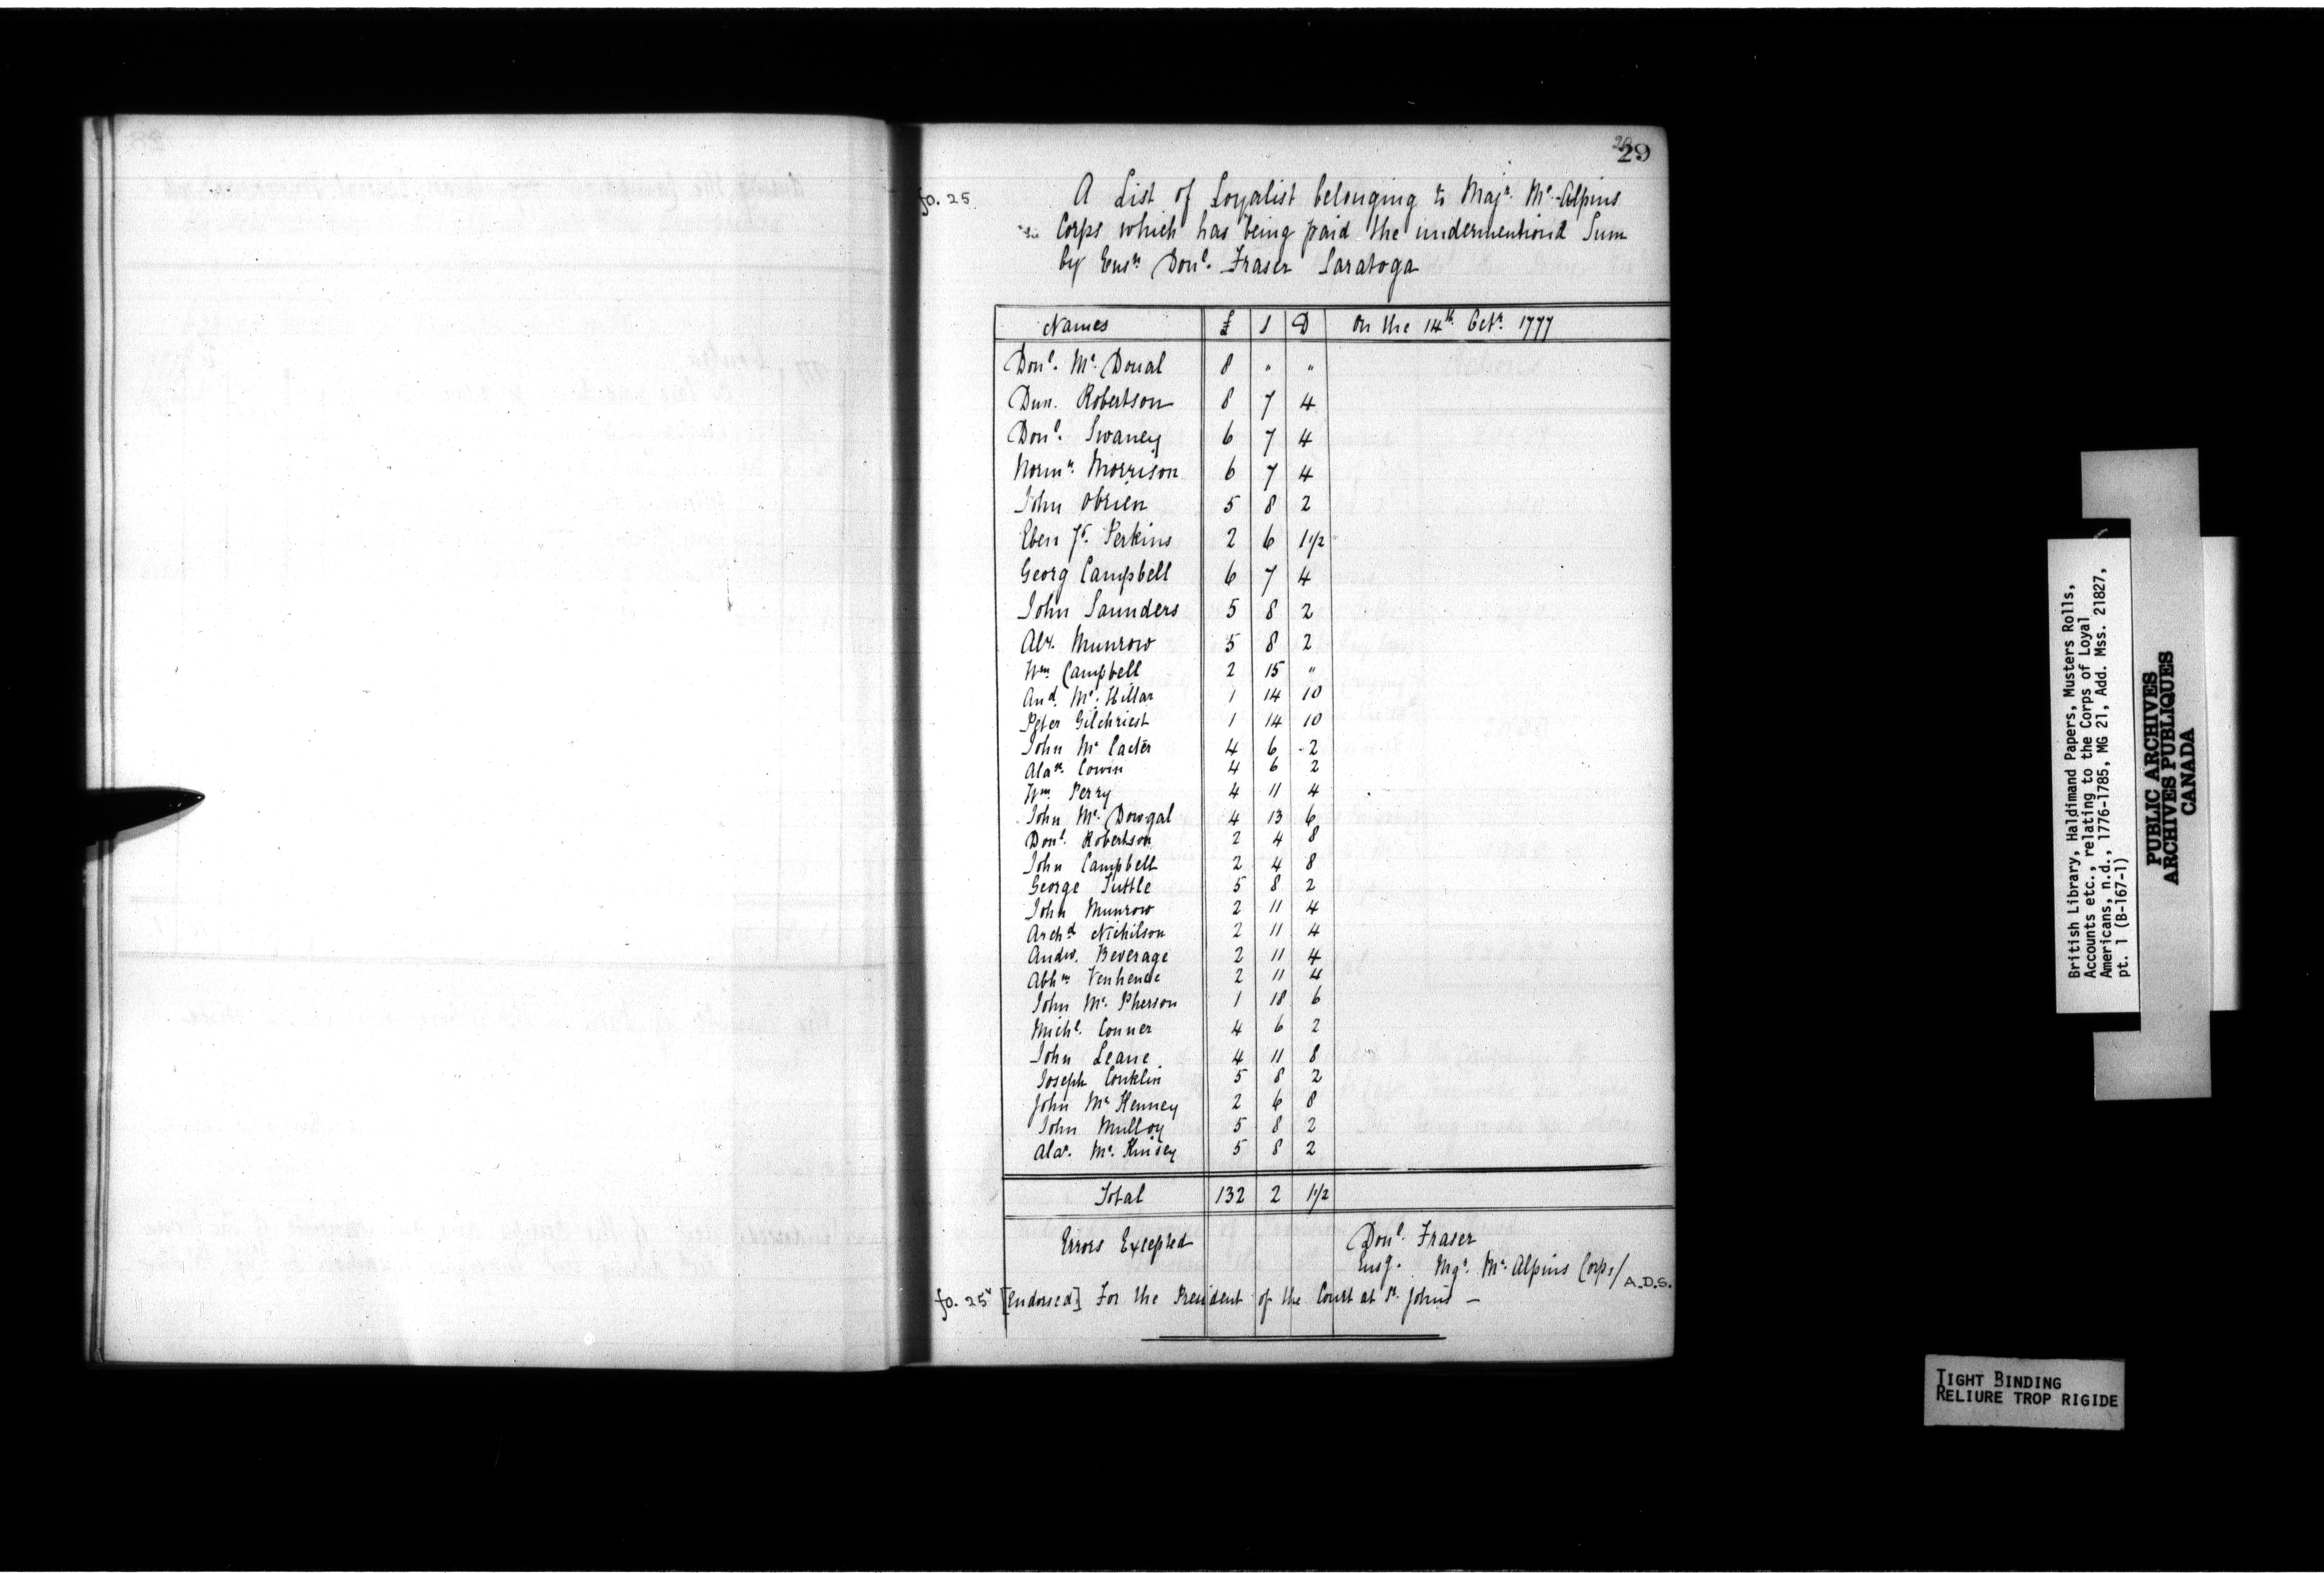 29
fo. 25
A List of Loyalist belonging to Majr. Mc. Alpins
Corps which has being paid the undermentiond Sum
by Ensn. Donl. Fraser Saratoga
Names £ S D On the 14th. Octr. 1777
Donl. Mc. Donal 8 " "
Dun. Robertson 8 7 4
Donl. Swaney 6 7 4
Normn. Morrison 6 7 4
John Obrien 5 8 2
Eben Jr. Perkins 2 6 1 1/2
Georg Campbell 6 7 4
John Saunders 5 8 2
Alr. Munrow 5 8 2
Wm. Campbell 2 15 "
And. Mc. Hillar 1 14 10
Peter Gilchriest 1 14 10
John Mc Carter 4 6 2
Alar. Cowin 4 6 2
Wm Perry 4 11 4
John Mc. Dowgal 4 13 6
Donl. Robertson 2 4 8
John Campbell 2 4 8
George Tuttle 5 8 2
John Munrow 2 11 4
Archd Nichilson 2 11 4
Andw. Beverage 2 11 4
Abhm Venhende 2 11 4
John Mc. Pherson 1 18 6
Michl. Conner 4 6 2
John Leane 4 11 8
Joseph Conklin 5 8 2
John Mc Kenney 2 6 8
John Mulloy 5 8 2
Alar. Mc. Kinsey 5 8 2
Total 132 2 1 1/2
Errors Excepted Donl. Fraser
Ensg. Mgr. Mc. Alpins Corps/ A.D.S.
fo. 25v [Endorsed] For the President of the Court at St. Johns —
British Library, Haldimand Papers, Musters Rolls,
Accounts etc., relating to the Corps of Loyal
Americans, n.d., 1776-1785, MG 21, Add. Mss. 21827,
pt. 1 (B-167-1)
PUBLIC ARCHIVES
ARCHIVES PUBLIQUES
CANADA
TIGHT BINDING
RELIURE TROP RIGIDE